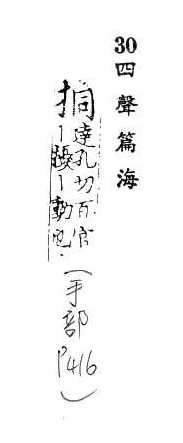 30 四聲篇海
挏
達孔切百官
｜擾｜動也.
(手部
P416)